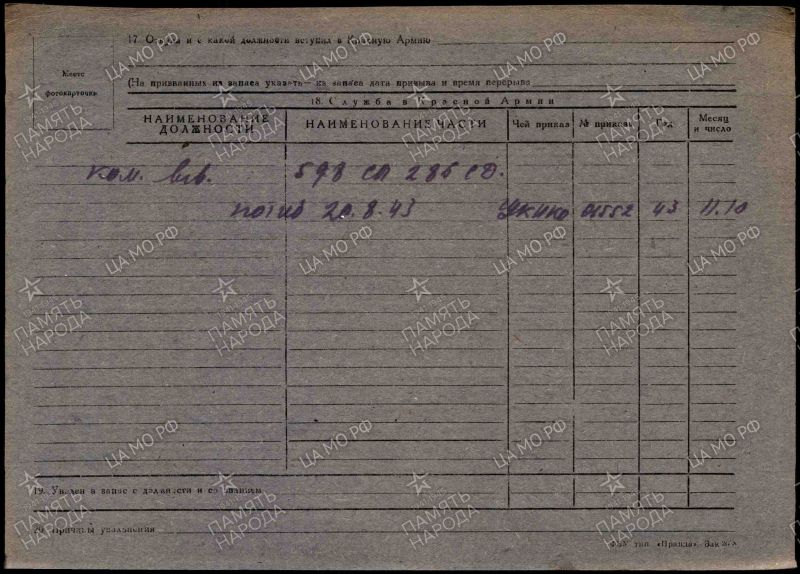 17. Откуда и с какой должности вступил в Красную Армию
Место
фотокарточки
(На призванных из запаса указать — из запаса дата призыва и время перерыва
18. Служба в Красной Армии
НАИМЕНОВАНИЕ ДОЛЖНОСТИ НАИМЕНОВАНИЕ ЧАСТИ Чей приказ № приказа Год Месяц и число
ком. взв. 598 сп 286 сд.
погиб 20.8.43 УКИКО 01552 43 11.10
19. Уволен в запас с должности и со званием
20. Причины увольнения
тип. «Правда». Зак.
ПАМЯТЬ НАРОДА
ЦА МО РФ